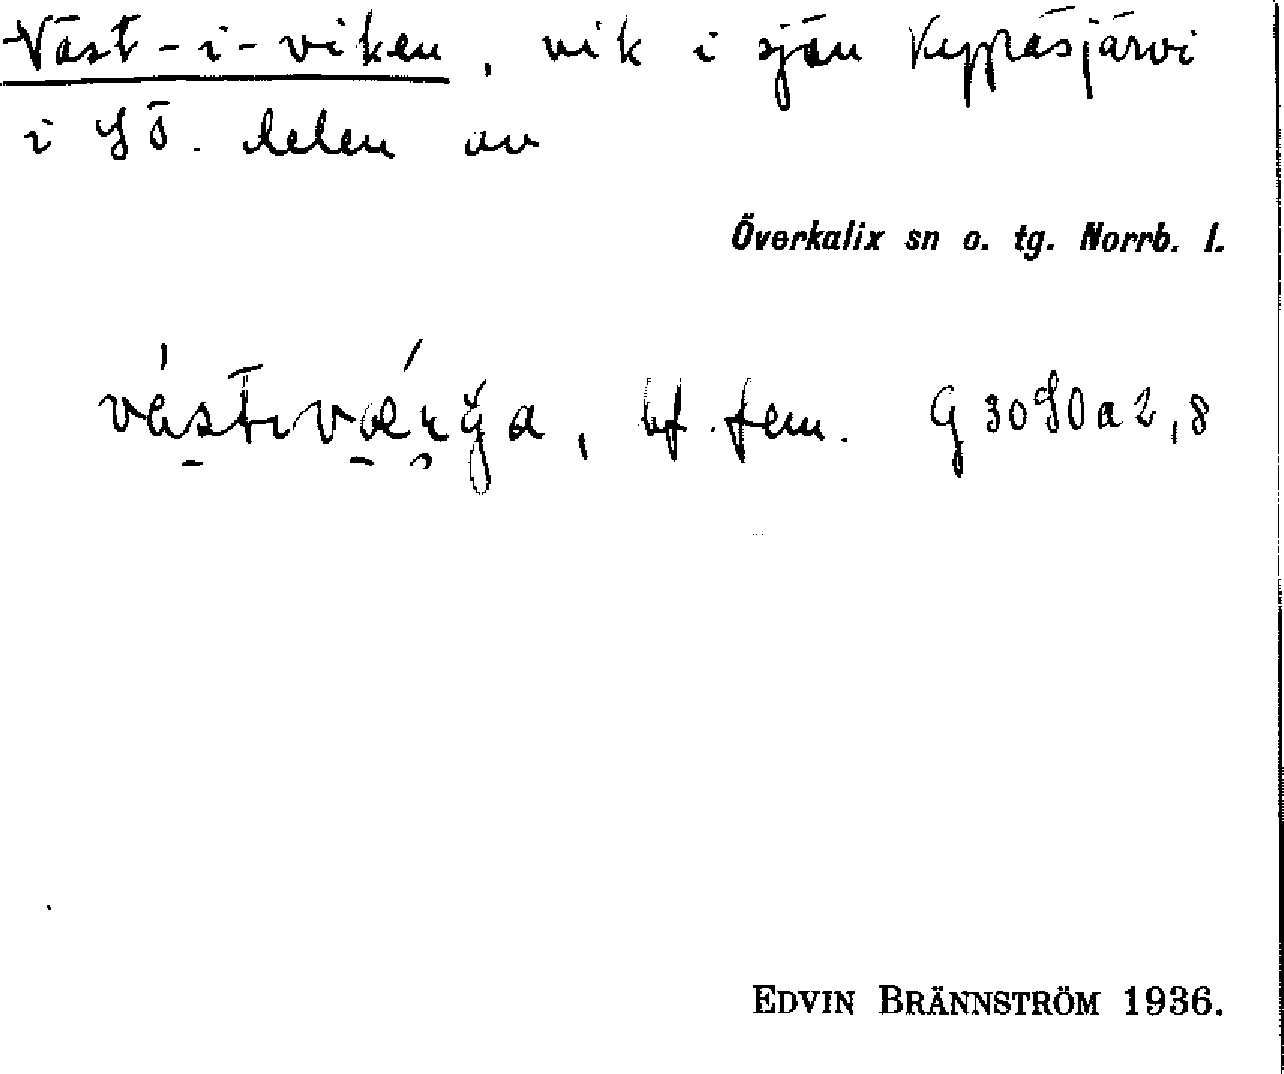 Väst-i-viken, vik i sjön Kypräsjärvi
i SÖ. delen av
Överkalix sn o. tg. Norrb. l.
bf. fem. G 30 S0 a 2,8
EDVIN BRÄNNSTRÖM 1936.